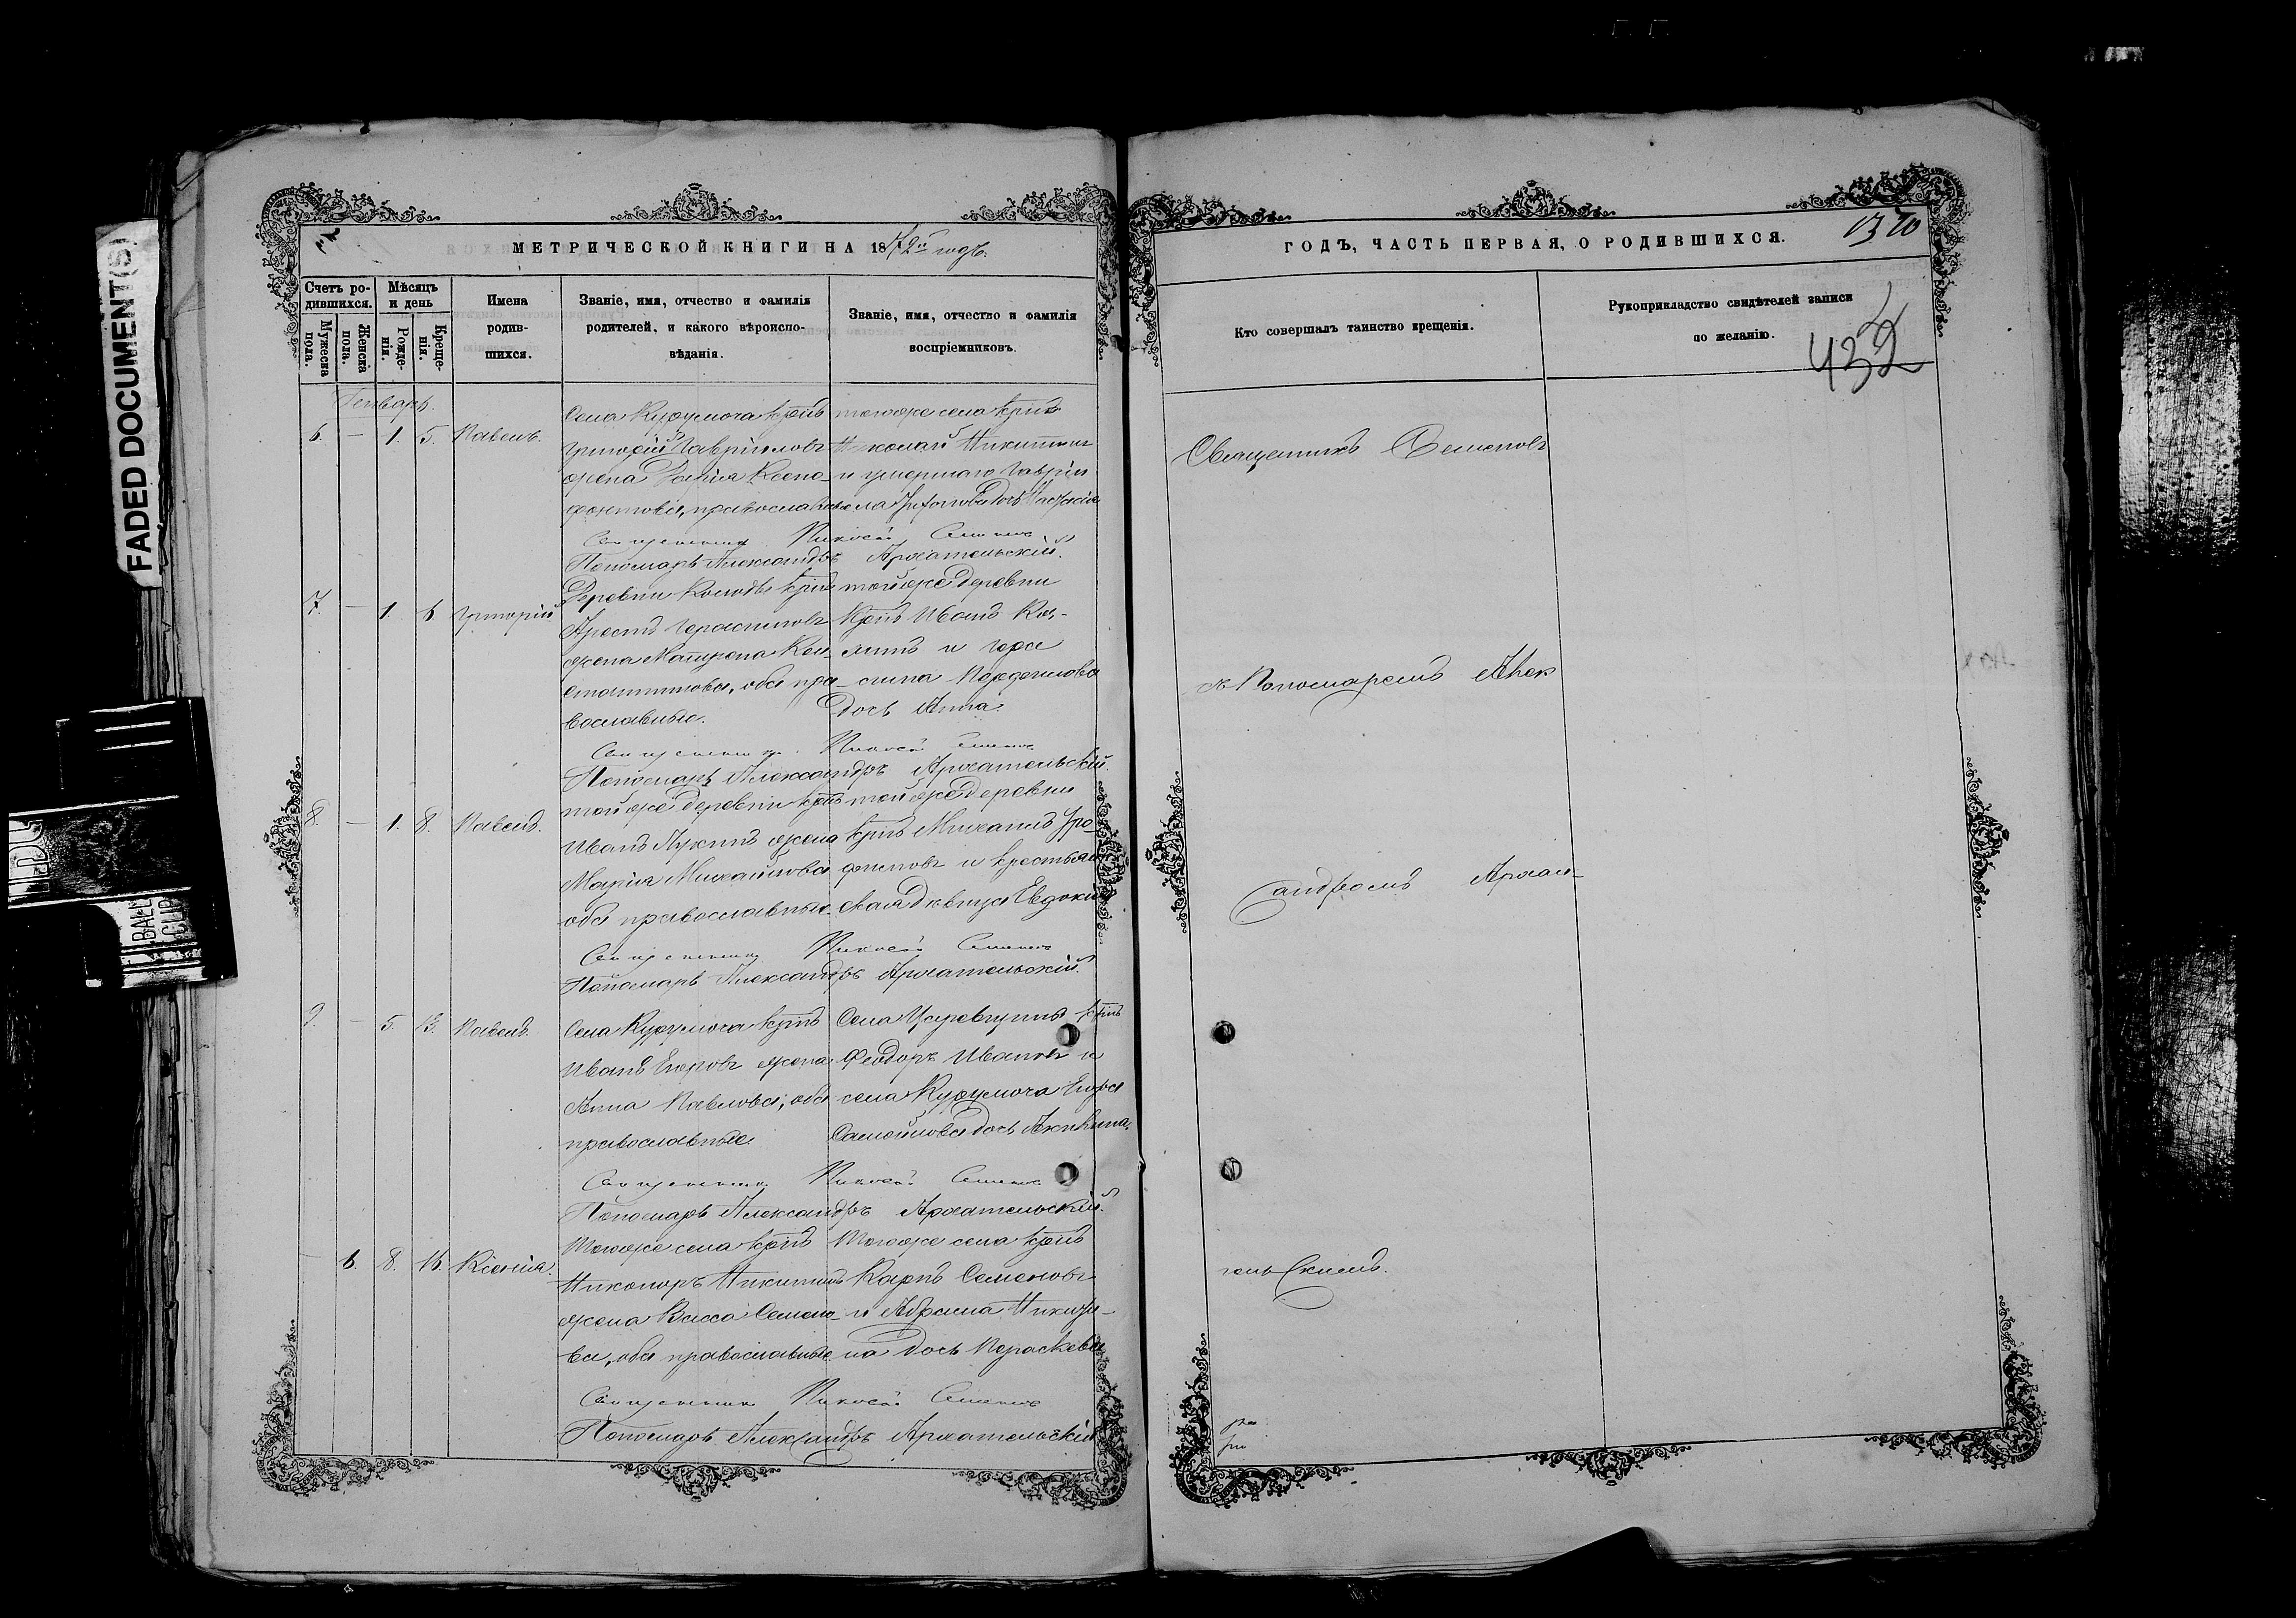 FADED DOCUMENT(S)
МЕТРИЧЕСКОЙ КНИГИ НА 1872й годъ.
Счетъ ро-
дившихся.
Мѣсяцъ
и день
Мужеска
пола.
Женска
пола.
Рожде-
нія.
Креще-
нія.
Имена
родив-
шихся.
Званіе, имя, отчество и фамилія
родителей, и какого вѣроиспо-
вѣданія.
Званіе, имя, отчество и фамилія
воспріемниковъ.
Генварь.
6. — 1. 5. Павелъ.
Села Курумоча крнъ
Григорій Гавриловъ
жена
православные
тогоже села крнъ
Николай Никитинъ
и умершаго Гавріила
Священникъ Николай Семеновъ
Пономарь Александръ Архангельскій.
7. — 1. 6. Григорій
Деревни крнъ
Герасимовъ
жена Матрена Кон-
стантинова, оба пра-
вославные.
тойже деревни
крнъ Иванъ
и Гера-
сима
дочь Анна.
Священникъ Николай Семеновъ
Пономарь Александръ Архангельскій.
8. — 1. 8. Павелъ.
тойже деревни крнъ
Иванъ Лукинъ жена
Марія Михайлова
оба православные.
тойже деревни
крнъ Михаилъ Тро-
фимовъ и крестьян-
ская дѣвица Евдокія
Священникъ Николай Семеновъ
Пономарь Александръ Архангельскій.
9. — 5. 13. Павелъ.
Села Курумоча крнъ
Иванъ Егоровъ жена
Анна Павлова, оба
православные
Села Царевщины крнъ
Феодоръ Ивановъ и
села Курумоча Егора
Самойлова дочь Акилина.
Священникъ Николай Семеновъ
Пономарь Александръ Архангельскій.
— 6. 8. 16. Ксенія.
Тогоже села крнъ
Никоноръ Никитинъ
жена Васса Семено-
ва, оба православные.
Тогоже села крнъ
Карпъ Семеновъ
и Абрама Никити-
на дочь Параскева
Священникъ Николай Семеновъ
Пономарь Александръ Архангельскій
ГОДЪ, ЧАСТЬ ПЕРВАЯ, О РОДИВШИХСЯ.
Кто совершалъ таинство крещенія.
Рукоприкладство свидѣтелей записи
по желанію.
432
Священникъ Семеновъ
съ Пономаремъ Алек
сандромъ Архан-
гельскимъ.